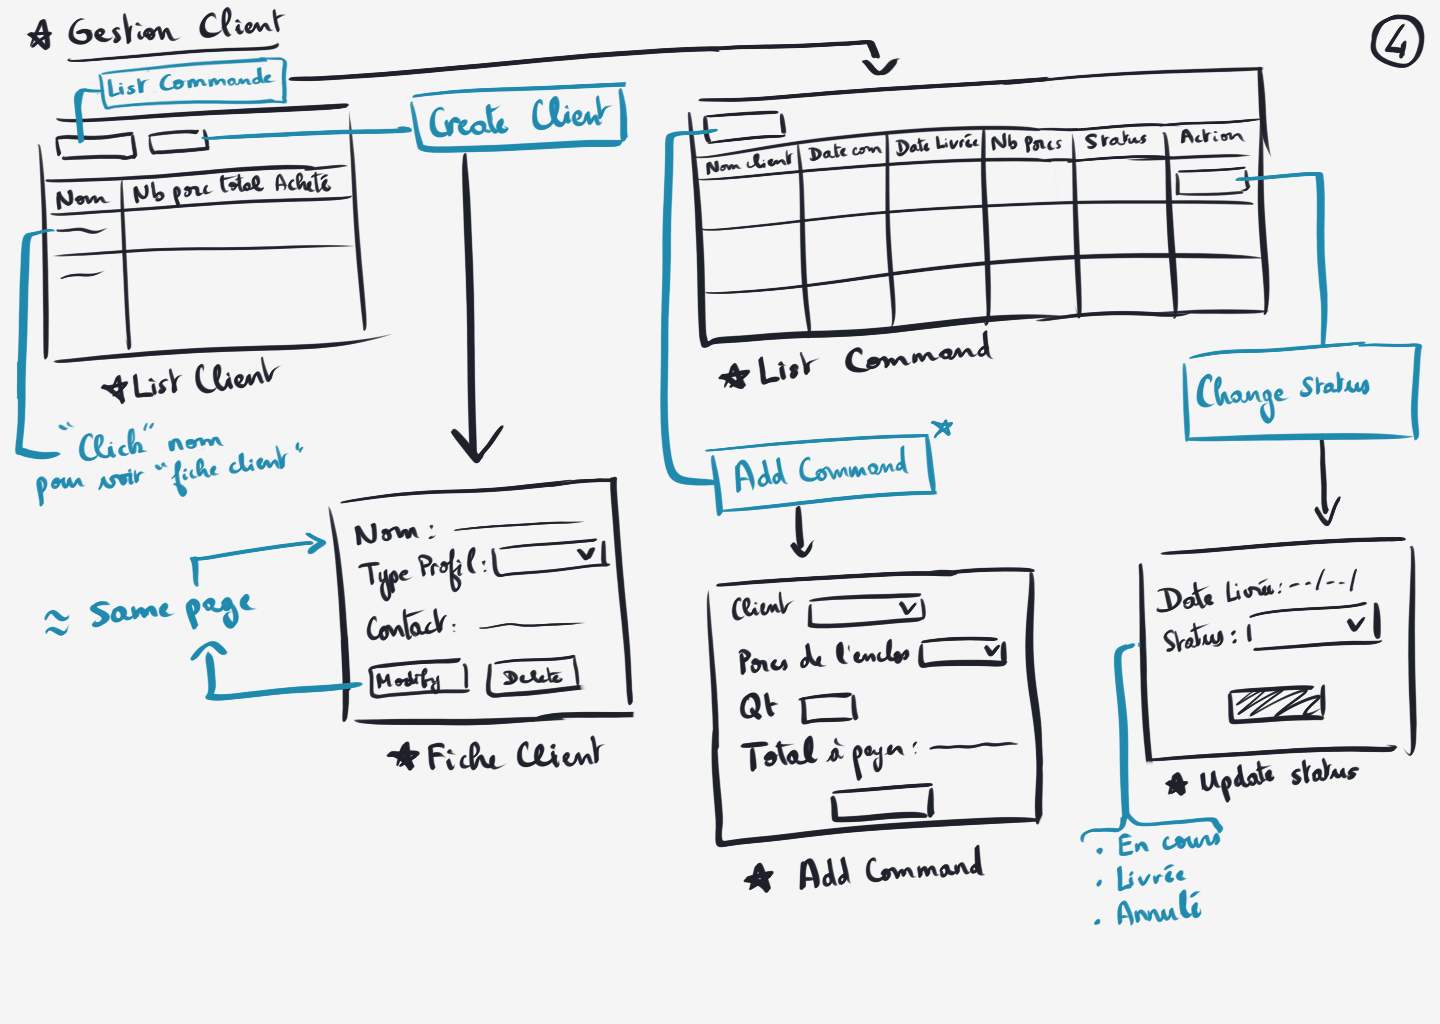 Gestion Client
4
List Commande
Create Client
Nom
Nb porc total Acheté
List Client
"Click" nom
pour voir "fiche client"
Nom client
Date com
Date Livrée
Nb Porcs
Status
Action
List Command
Change Status
Add Command
Nom :
Type Profil :
Contact :
Modify
Delete
≈ Same page
Fiche Client
Client
Porcs de l'enclos
Qt
Total à payer :
Add Command
Date Livrée : --/--/
Status :
Update status
. En cours
. Livrée
. Annulé